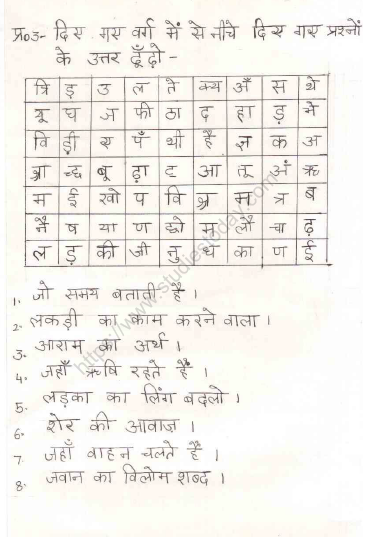 प्र०3- दिए गए वर्ग में से नीचे दिए गए प्रश्नों
के उत्तर ढूँढो -
त्रि ड़ उ ल ते क्य अँ स थे
यू घ ज फी ठा द हा ड़ मे
वि ड़ी स पँ थी है ज्ञ क अ
श्रा द्ध बू ढ़ा ट आ तू अं ऋ
म ई खो प वि श्र म त्र ब
नै ष या ण ढो म लौ चा ढ़
ल ड़ की जी नु थे का ण ई
1. जो समय बताती है ।
2. लकड़ी का काम करने वाला ।
3. आराम का अर्थ ।
4. जहाँ ऋषि रहते हैं ।
5. लड़का का लिंग बदलो ।
6. शेर की आवाज़ ।
7. जहाँ वाहन चलते हैं ।
8. जवान का विलोम शब्द ।
https://www.studiestoday.com